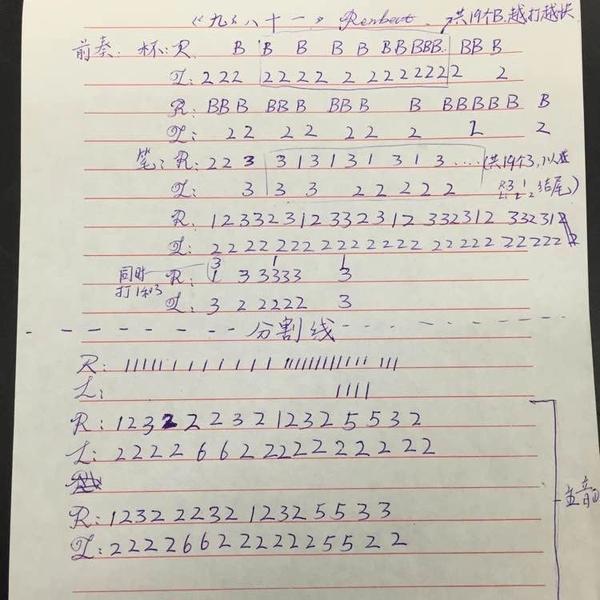 《九九八十一》 Renbeat. 共19个B,越打越快
前奏: 杯: R: B B B B B BB BBB. BB B
L: 2 2 2 2 2 2 2 2 2 2 2 2 2 2 2 2
R: BB B BB B BB B B BBBBB B
L: 2 2 2 2 2 2 2 2 2
笔: R: 2 2 3 3 1 3 1 3 1 3 1 3 .... (共19个3,
L: 3 3 3 2 2 2 2 2 结尾)
R: 1 2 3 3 2 3 1 2 3 3 2 3 1 2 3 3 2 3 1 2 3 3 2 3 1 2
L: 2 2 2 2 2 2 2 2 2 2 2 2 2 2 2 2 2 2 2 2 2 2 2
3 1 1
同时打1和3 R: 1 3 3333 3
L: 3 2 2222 3
分割线
R: 11111 1 1 1 1 1 1 111111111111 111
L: 1111
R: 1 2 3 2 2 2 3 2 1 2 3 2 5 5 3 2
L: 2 2 2 2 6 6 2 2 2 2 2 2 2 2 2 2
R: 1 2 3 2 2 2 3 2 1 2 3 2 5 5 3 3
L: 2 2 2 2 6 6 2 2 2 2 2 2 5 5 2 2